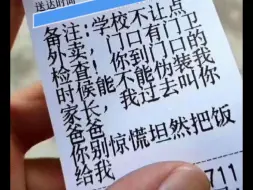 送达时间
备注：学校不让点
外卖，门口有门卫
检查；你到门口的
时候能不能伪装我
家长，我过去叫你
爸爸
你别惊慌坦然把饭
给我
711